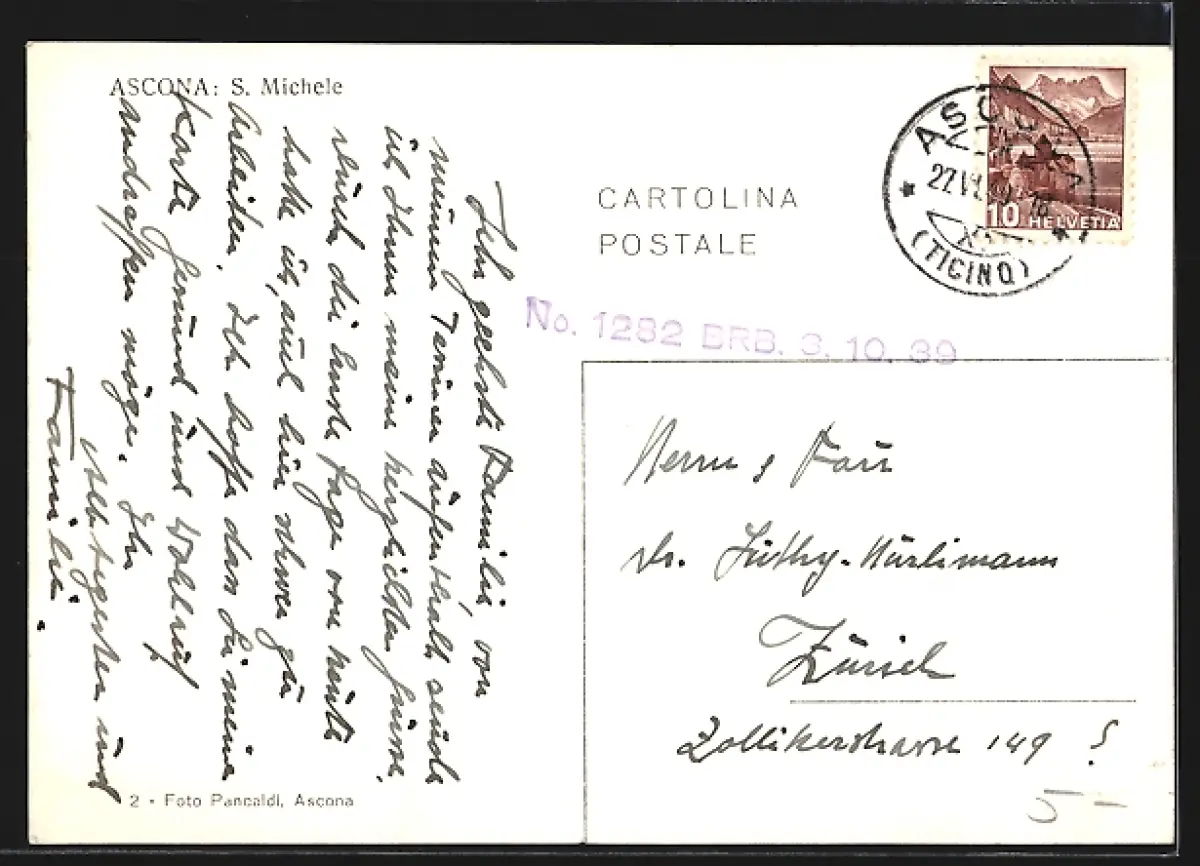 ASCONA: S. Michele
CARTOLINA
POSTALE
ASCONA
27.VI.
(TICINO)
10 HELVETIA
No. 1282 BRB. 3. 10. 39
Sehr geehrte Familie, von
meinem Tessiner aufenthalt, sende
ich Ihnen meine herzlichsten Grüsse,
durch die Ernste Lage von heute
habe ich, auch hier schwer zu
Arbeiten. Ich hoffe dass Sie meine
Karte Gesund und Wohlauf
andreffen möge. Ihr
und
Familie.
Herrn & Frau
Dr. Lüthy-Hürlimann
Zürich
Zollikerstrasse 149
5 -
2 - Foto Pancaldi, Ascona